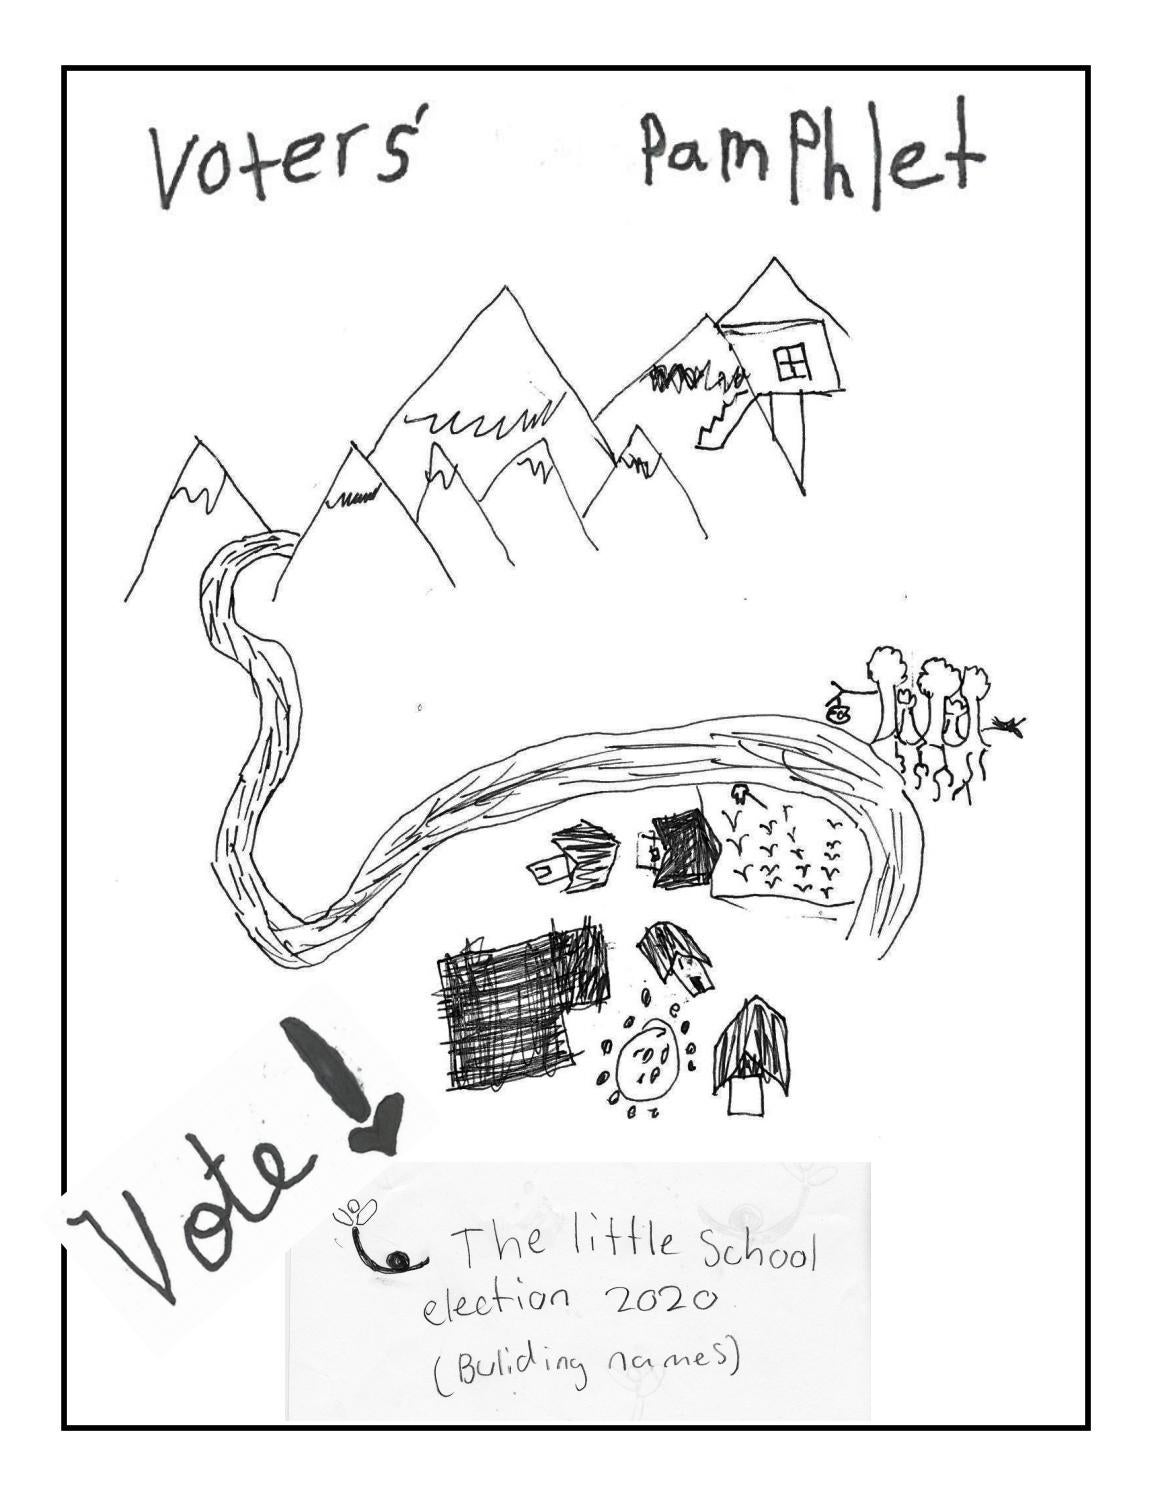 Voters' Pamphlet
Vote!
The little School
election 2020
(Buliding names)